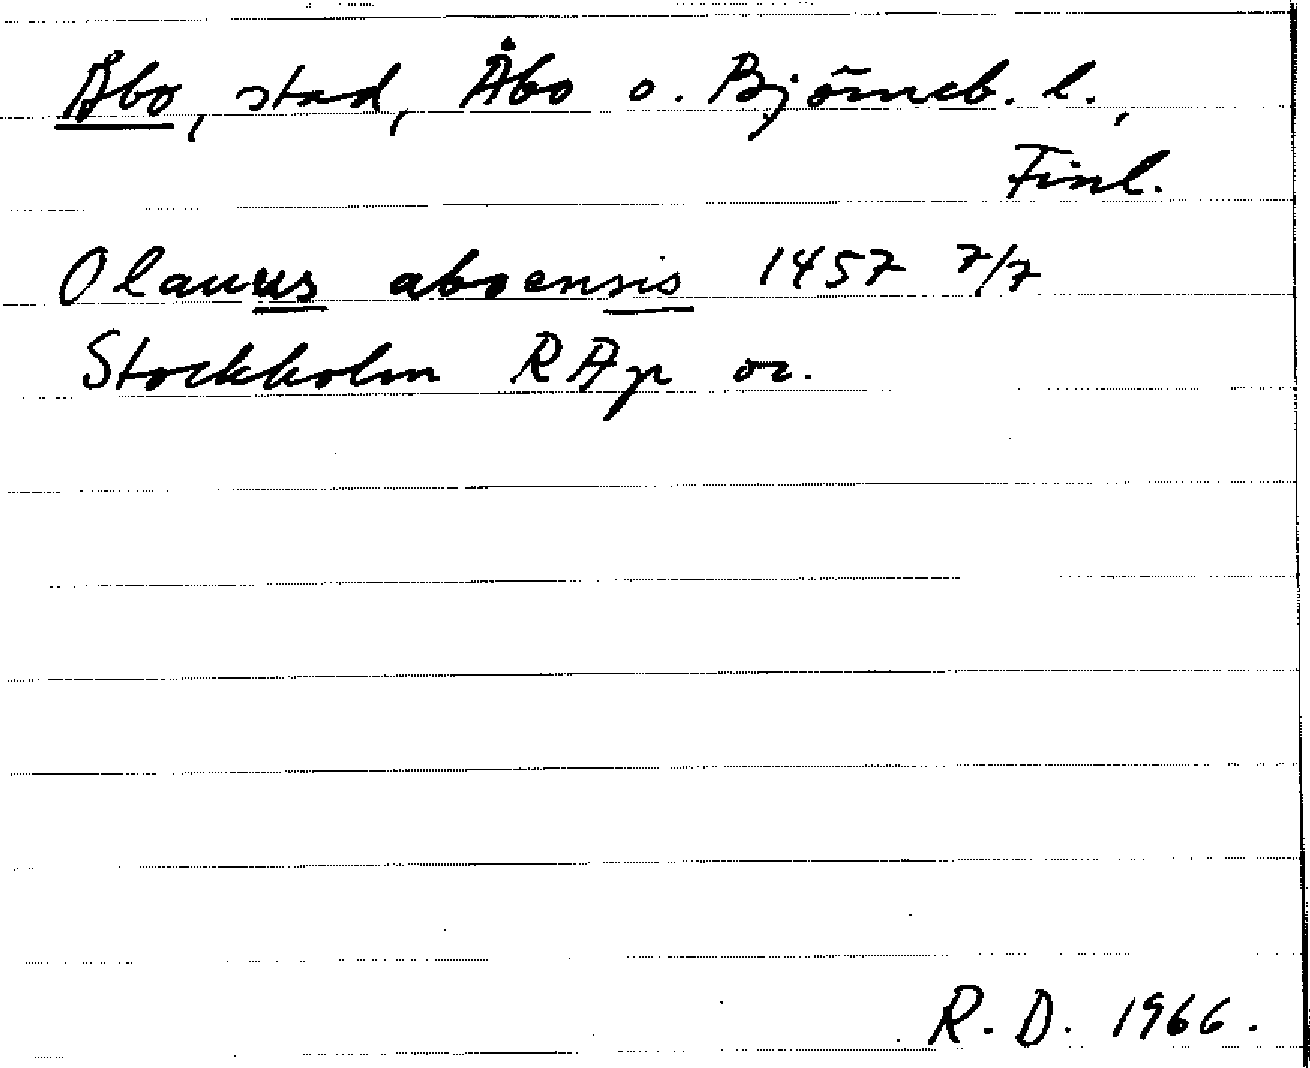 Åbo, stad, Åbo o. Björneb. l.,
Finl.
Olauus aboensis 1457 7/7
Stockholm RAp or.
R. D. 1966.